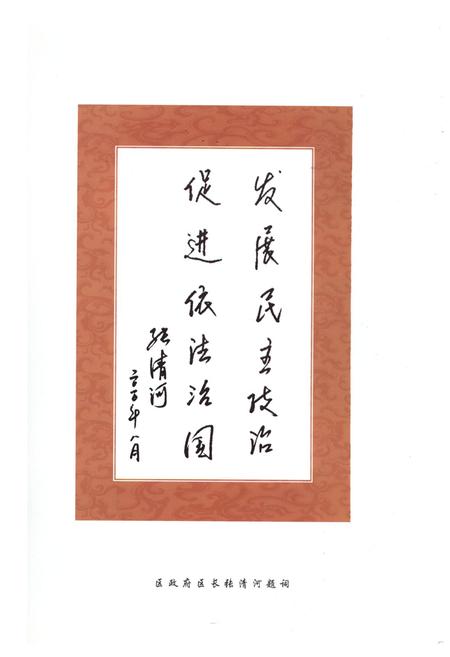 发展民主政治
促进依法治国
张清河
二〇〇〇年八月
区政府区长张清河题词